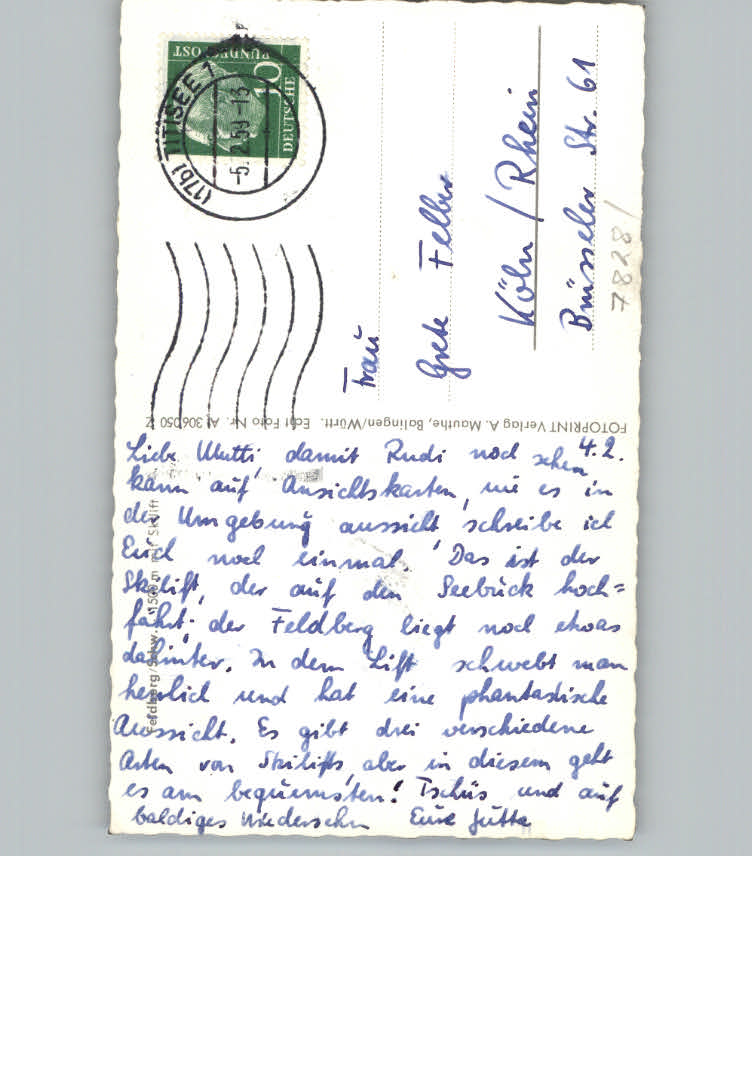 4.2.
Liebe Mutti, damit Rudi noch sehen
kann auf Ansichtskarten, wie es in
der Umgebung aussieht, schreibe ich
Euch noch einmal. Das ist der
Skilift, der auf den Seebuck hoch=
fährt. der Feldberg liegt noch etwas
dahinter. In dem Lift schwebt man
herrlich und hat eine phantastische
Aussicht. Es gibt drei verschiedene
Arten von Skilifts, aber in diesem geht
es am bequemsten! Tschüs und auf
baldiges Wiedersehn Eure Jutta
Frau
Grete Felber
Köln / Rhein
Brüsseler Str. 61
7828/
(17b) TITISEE 1
-5.2.59-13
DEUTSCHE
BUNDESPOST
10
FOTOPRINT Verlag A. Mauthe, Balingen/Württ. Echt Foto Nr. Al 306050 Z
Feldberg/Schw. 1500 m mit Skilift